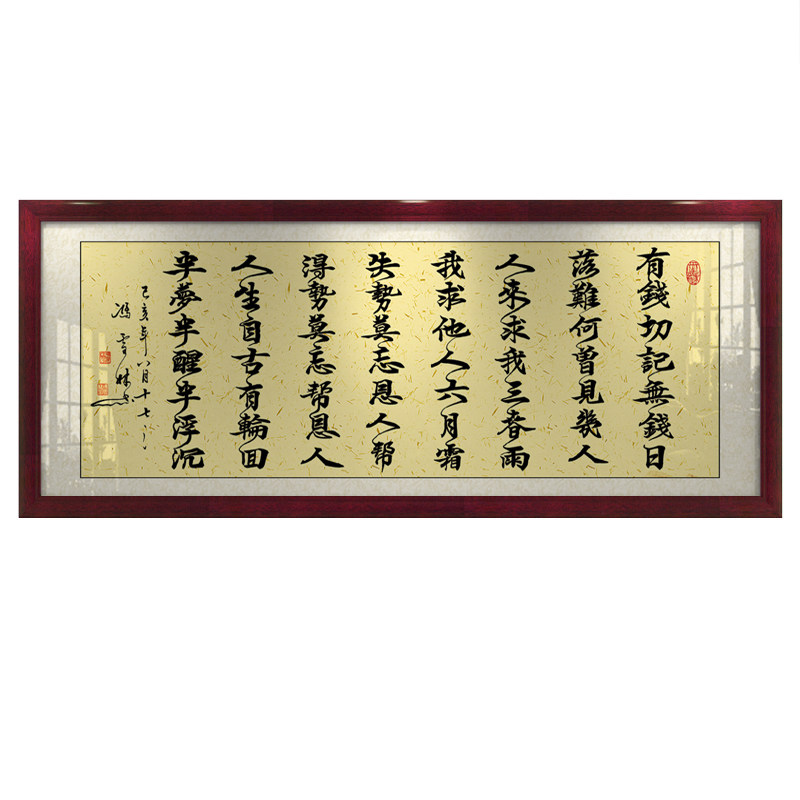 有錢切記無錢日
落難何曾見幾人
人來求我三春雨
我求他人六月霜
失勢莫忘恩人幫
得勢莫忘帮恩人
人生自古有輪回
半夢半醒半浮沉
己亥年八月十七
馮雪林書